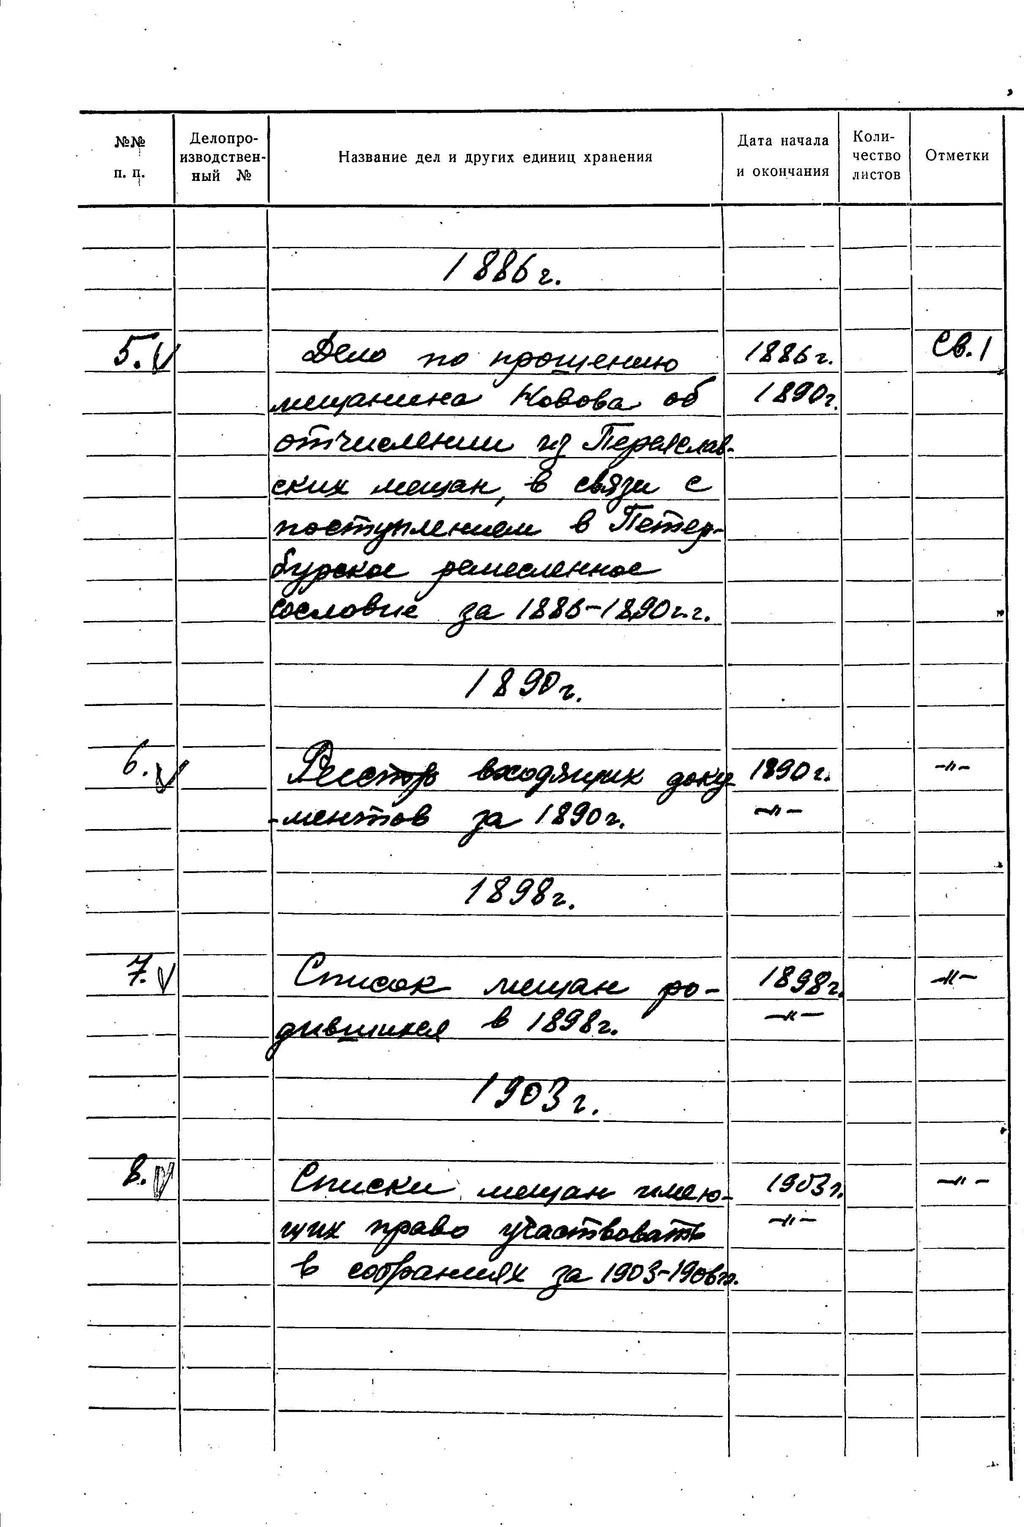 №№ п. п. Делопроизводственный № Название дел и других единиц хранения Дата начала и окончания Количество листов Отметки
1886 г.
5. V Дело по прошению 1886 г. Св. 1
мещанина Новова об 1890 г.
отчислении из Переяслав-
ских мещан, в связи с
поступлением в Петер-
бурское ремесленное
сословие за 1886-1890 г.г.
1890 г.
6. V Реестр входящих доку 1890 г. -"-
-ментов за 1890 г. -"-
1898 г.
7. V Список мещан ро- 1898 г. -"-
дившихся в 1898 г. -"-
1903 г.
8. V Списки мещан имею- 1903 г. -"-
щих право участвовать -"-
в собраниях за 1903-1906 гг.